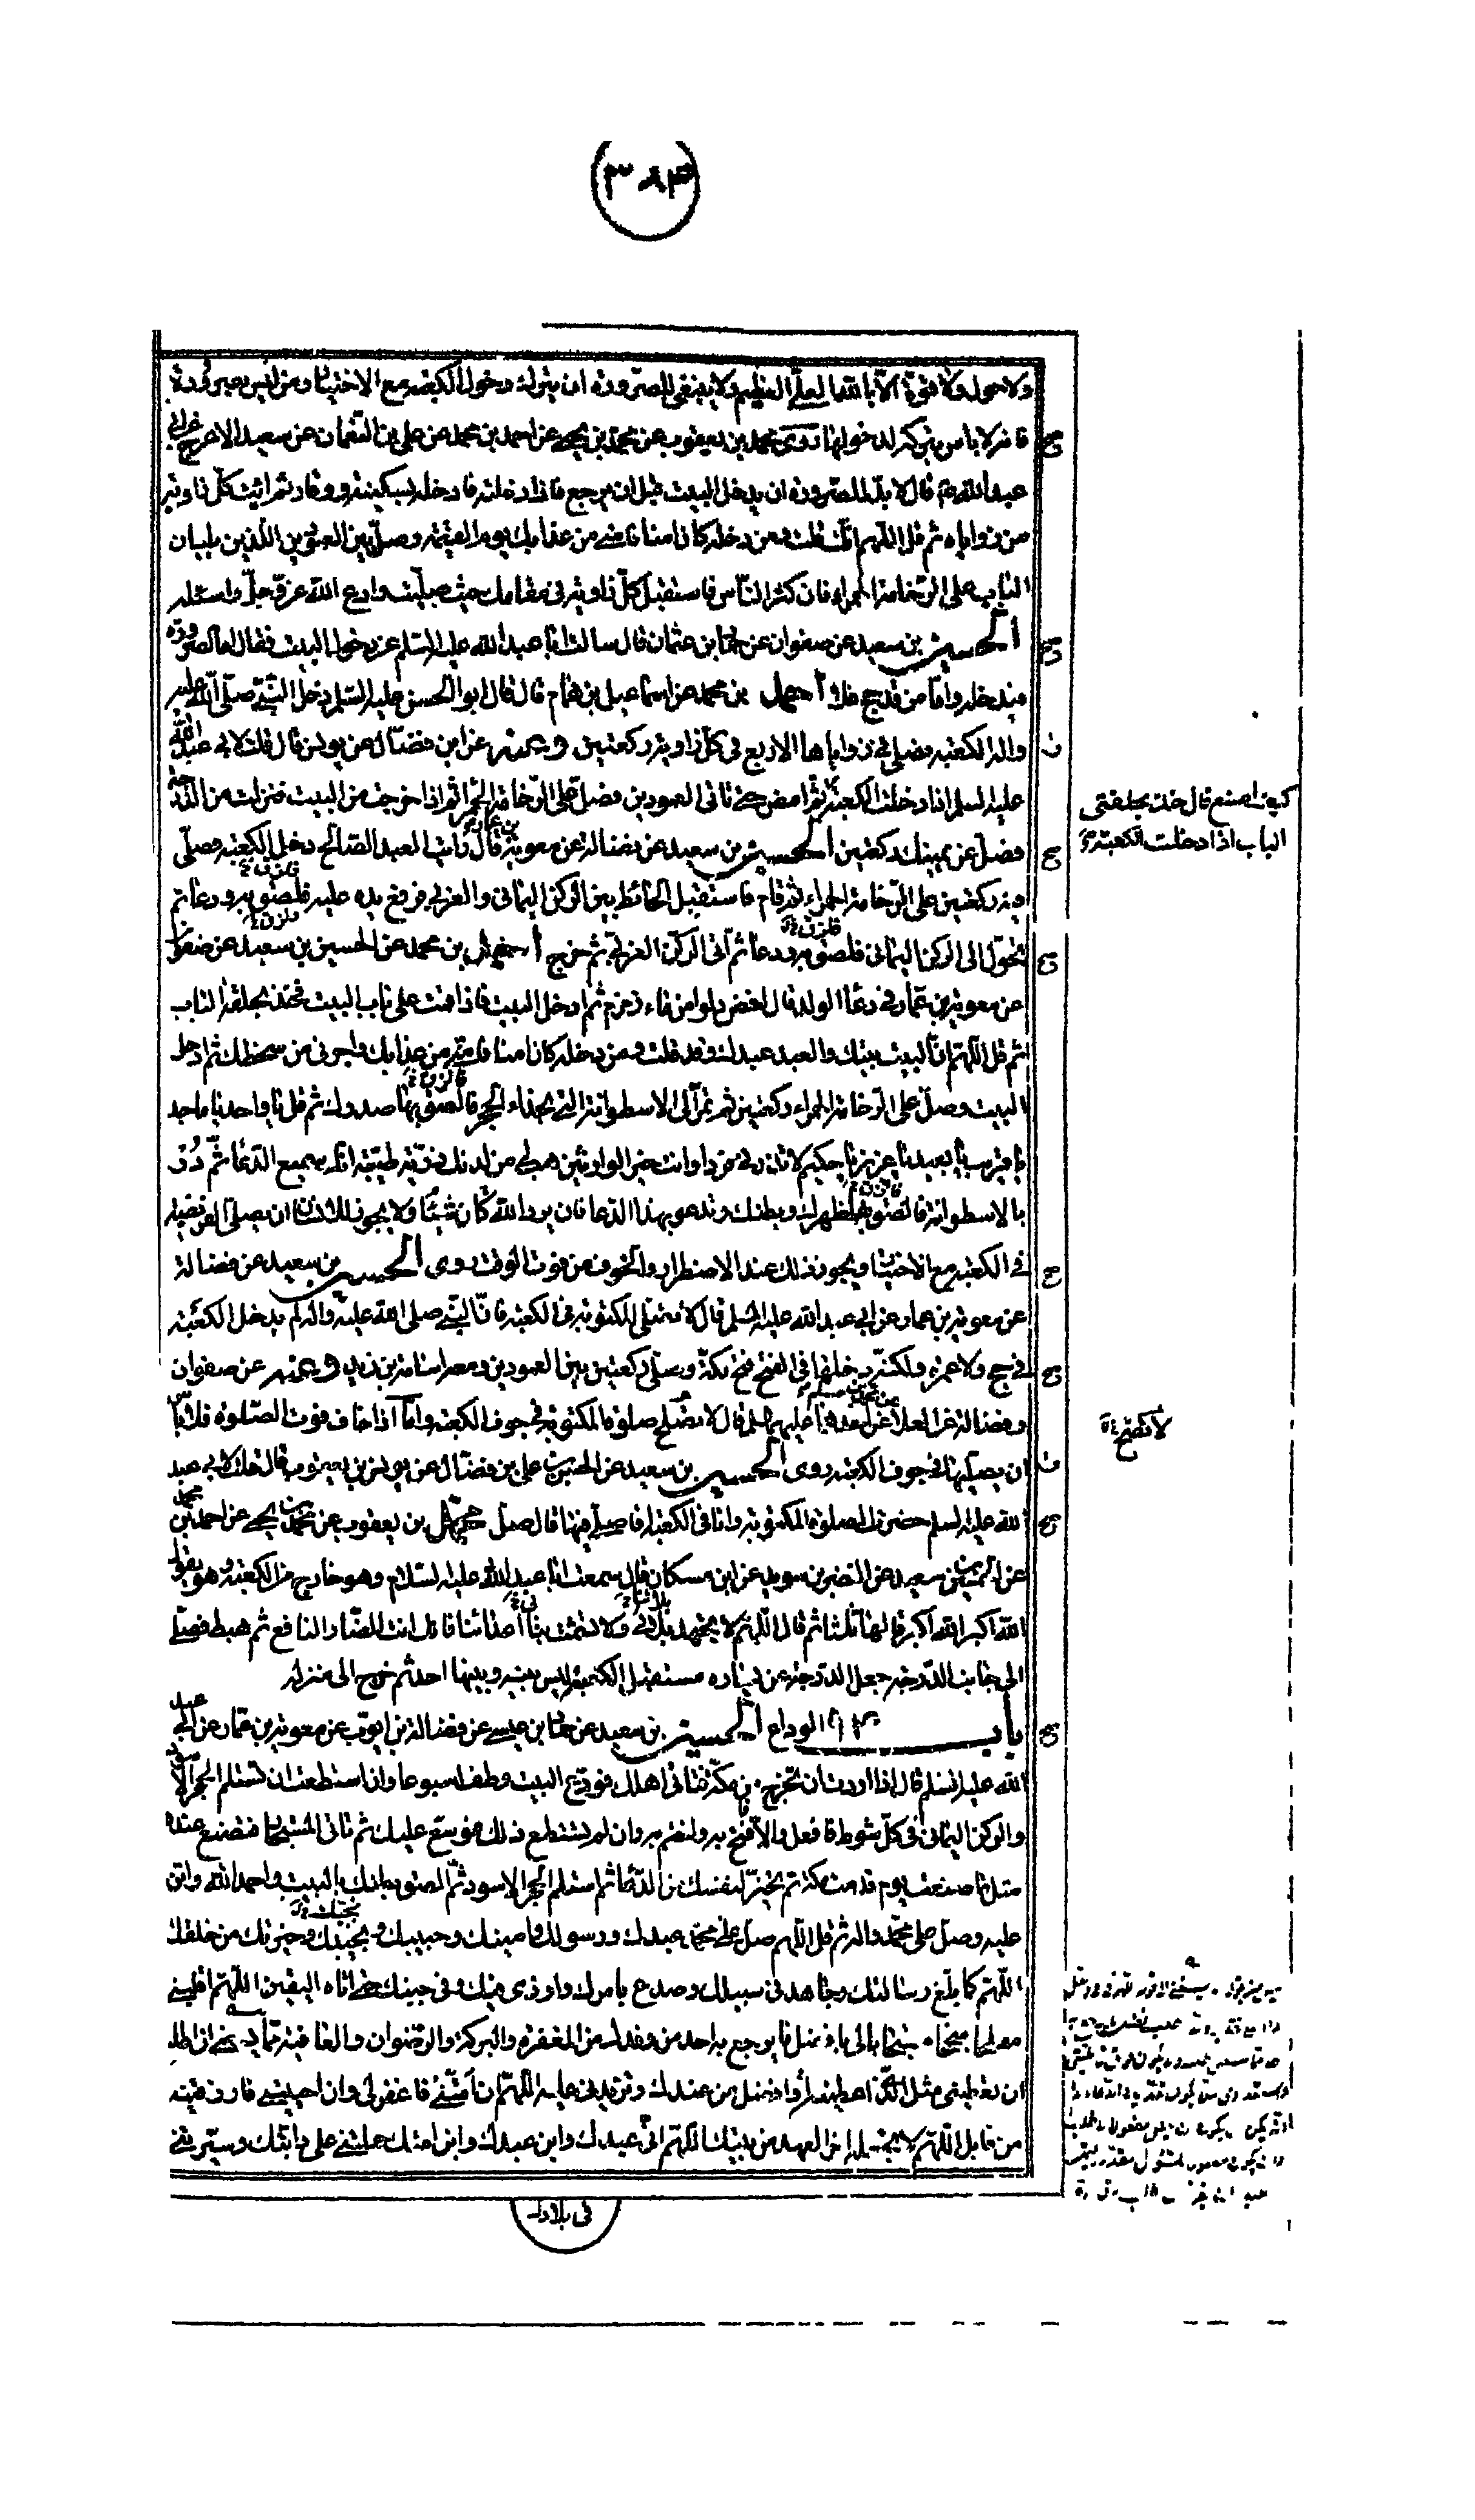 (٣٨٤)
ولا حول ولا قوة الا بالله العلي العظيم ولا ينبغي للصرورة ان يترك دخول الكعبة مع الاختيار ومن ليس بصرورة
فانه لا باس بتركه لدخولها روى محمد بن يعقوب عن محمد بن يحيى عن احمد بن محمد عن علي بن النعمان عن سعيد الاعرج عن ابي
عبد الله ع قال لا بد للصرورة ان يدخل البيت قبل ان يرجع فاذا دخلته فادخله بسكينة ووقار ثم ائت كل زاوية
من زواياه ثم قل اللهم انك قلت ومن دخله كان امنا فامني من عذابك يوم القيمة وصل بين العمودين اللذين يليان
الباب على الرخامة الحمراء فان كثر الناس فاستقبل كل زاوية في مقامك حيث صليت وادع الله عز وجل واسئله
الحسين بن سعيد عن صفوان عن حماد بن عثمان قال سالت ابا عبد الله عليه السلم عن دخول البيت فقال اما الصرورة
فيدخله واما من قد حج فلا احمد بن محمد عن اسماعيل بن همام قال قال ابو الحسن عليه السلم دخل النبي صلى الله عليه
واله الكعبة فصلى في زواياها الاربع في كل زاوية ركعتين وعنه عن ابن فضال عن يونس قال قلت لابي عبد الله
عليه السلم اذا دخلت الكعبة ثم امض حتى تاتي العمودين فصل على الرخامة الحمراء ثم اذا خرجت من البيت فنزلت من الدرجة
كيف اصنع قال خذ بحلقتي
الباب اذا دخلت الكعبة
فصل عن يمينك ركعتين الحسين بن سعيد عن فضالة عن معوية بن عمار قال رايت العبد الصالح دخل الكعبة فصلى
فيه ركعتين على الرخامة الحمراء ثم قام فاستقبل الحائط بين الركن اليماني والغربي فرفع يده عليه فلصق به ودعا ثم
تحول الى الركن اليماني فلصق به ودعا ثم اتى الركن الغربي ثم خرج احمد بن محمد عن الحسين بن سعيد عن صفوان
عن معوية بن عمار في دعاء الولد قال افض دلوا من ماء زمزم ثم ادخل البيت فاذا قمت على باب البيت فخذ بحلقة الباب
ثم قل اللهم ان البيت بيتك والعبد عبدك وقد قلت ومن دخله كان امنا فامنه من عذابك واجرني من سخطك ثم ادخل
البيت وصل على الرخامة الحمراء ركعتين ثم قم الى الاسطوانة التي بحذاء الحجر فالصق بها صدرك ثم قل يا واحد يا ماجد
يا قريب يا بعيد يا عزيز يا حكيم لا تذرني فردا وانت خير الوارثين هب لي من لدنك ذرية طيبة انك سميع الدعاء ثم در
بالاسطوانة فالصق بها ظهرك وبطنك وتدعو بهذا الدعا فان يرد الله كان شيئا ولا يجوز للانسان ان يصلي الفريضة
في الكعبة مع الاختيار ويجوز ذلك عند الاضطرار والخوف من فوت الوقت روى الحسين بن سعيد عن فضالة
عن معوية بن عمار عن ابي عبد الله عليه السلم قال لا تصلي المكتوبة في الكعبة فان النبي صلى الله عليه واله لم يدخل الكعبة
في حج ولا عمرة ولكنه دخلها في الفتح فتح مكة وصلى ركعتين بين العمودين ومعه اسامة بن زيد وعنه عن صفوان
وفضالة عن العلا عن محمد بن مسلم عن احدهما عليهما السلم قال لا تصلح صلوة المكتوبة في جوف الكعبة واما اذا خاف فوت الصلوة فلا باس
لا تصح
ان يصليها في جوف الكعبة روى الحسين بن سعيد عن الحسن بن علي بن فضال عن يونس بن يعقوب قال قلت لابي عبد
الله عليه السلم حضرت الصلوة المكتوبة وانا في الكعبة افاصلي فيها قال صل محمد بن يعقوب عن محمد بن يحيى عن احمد بن محمد
عن الحسين بن سعيد عن النضر بن سويد عن ابن مسكان قال سمعت ابا عبد الله عليه السلام وهو خارج من الكعبة وهو يقول
الله اكبر الله اكبر قالها ثلثا ثم قال اللهم لا تجهد بلائي ولا تشمت بنا اعدائنا فانك انت الضار النافع ثم هبط فصلى
الى جانب الدرجة جعل الدرجة عن يساره مستقبل الكعبة ليس بينه وبينها احد ثم خرج الى منزله
باب الوداع الحسين بن سعيد عن حماد بن عيسى عن فضالة بن ايوب عن معوية بن عمار عن ابي عبد
الله عليه السلم قال اذا اردت ان تخرج من مكة فتاتي اهلك فودع البيت وطف اسبوعا وان استطعت ان تستلم الحجر الاسود
والركن اليماني في كل شوط فافعل والا فافتح به واختم به وان لم تستطع ذلك فموسع عليك ثم تاتي المستجار فتصنع عنده
مثل ما صنعت يوم قدمت مكة ثم تخير لنفسك من الدعا ثم استلم الحجر الاسود ثم الصق بطنك بالبيت واحمد الله واثن
عليه وصل على محمد واله ثم قل اللهم صل على محمد عبدك ورسولك وامينك وحبيبك ونجيبك وخيرتك من خلقك
اللهم كما بلغ رسالتك وجاهد في سبيلك وصدع بامرك واوذي فيك وفي جنبك حتى اتاه اليقين اللهم اقلبني
مفلحا منجحا مستجابا لي بافضل ما يرجع به احد من وفدك من المغفرة والبركة والرضوان والعافية مما يسعني ان اطلب
ان تعطيني مثل الذي اعطيته افضل من عندك وتزيدني عليه اللهم ان امتني فاغفر لي وان احييتني فارزقنيه
من قابل اللهم لا تجعله اخر العهد من بيتك اللهم اني عبدك وابن عبدك وابن امتك حملتني على دابتك وسيرتني
في بلادك